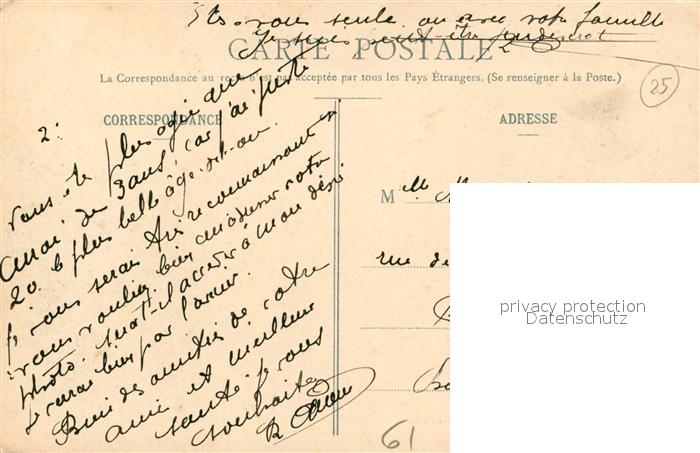 Êtes-vous seule ou avec votre famille
Je suis peut-être indiscret
CARTE POSTALE
La Correspondance au recto n'est pas acceptée par tous les Pays Étrangers. (Se renseigner à la Poste.)
25
CORRESPONDANCE
ADRESSE
2:
vous êtes plus agée que
moi de 3 ans car j'ai juste
20 le plus belle âge dit-on.
Je vous serai très reconnaissant si
vous vouliez bien m'adresser votre
photo. à mon désir
je serai bien par l'avoir.
Bien des amitiés de votre
ami et meilleure
santé je vous
souhaite
R
M
rue de
61
privacy protection
Datenschutz